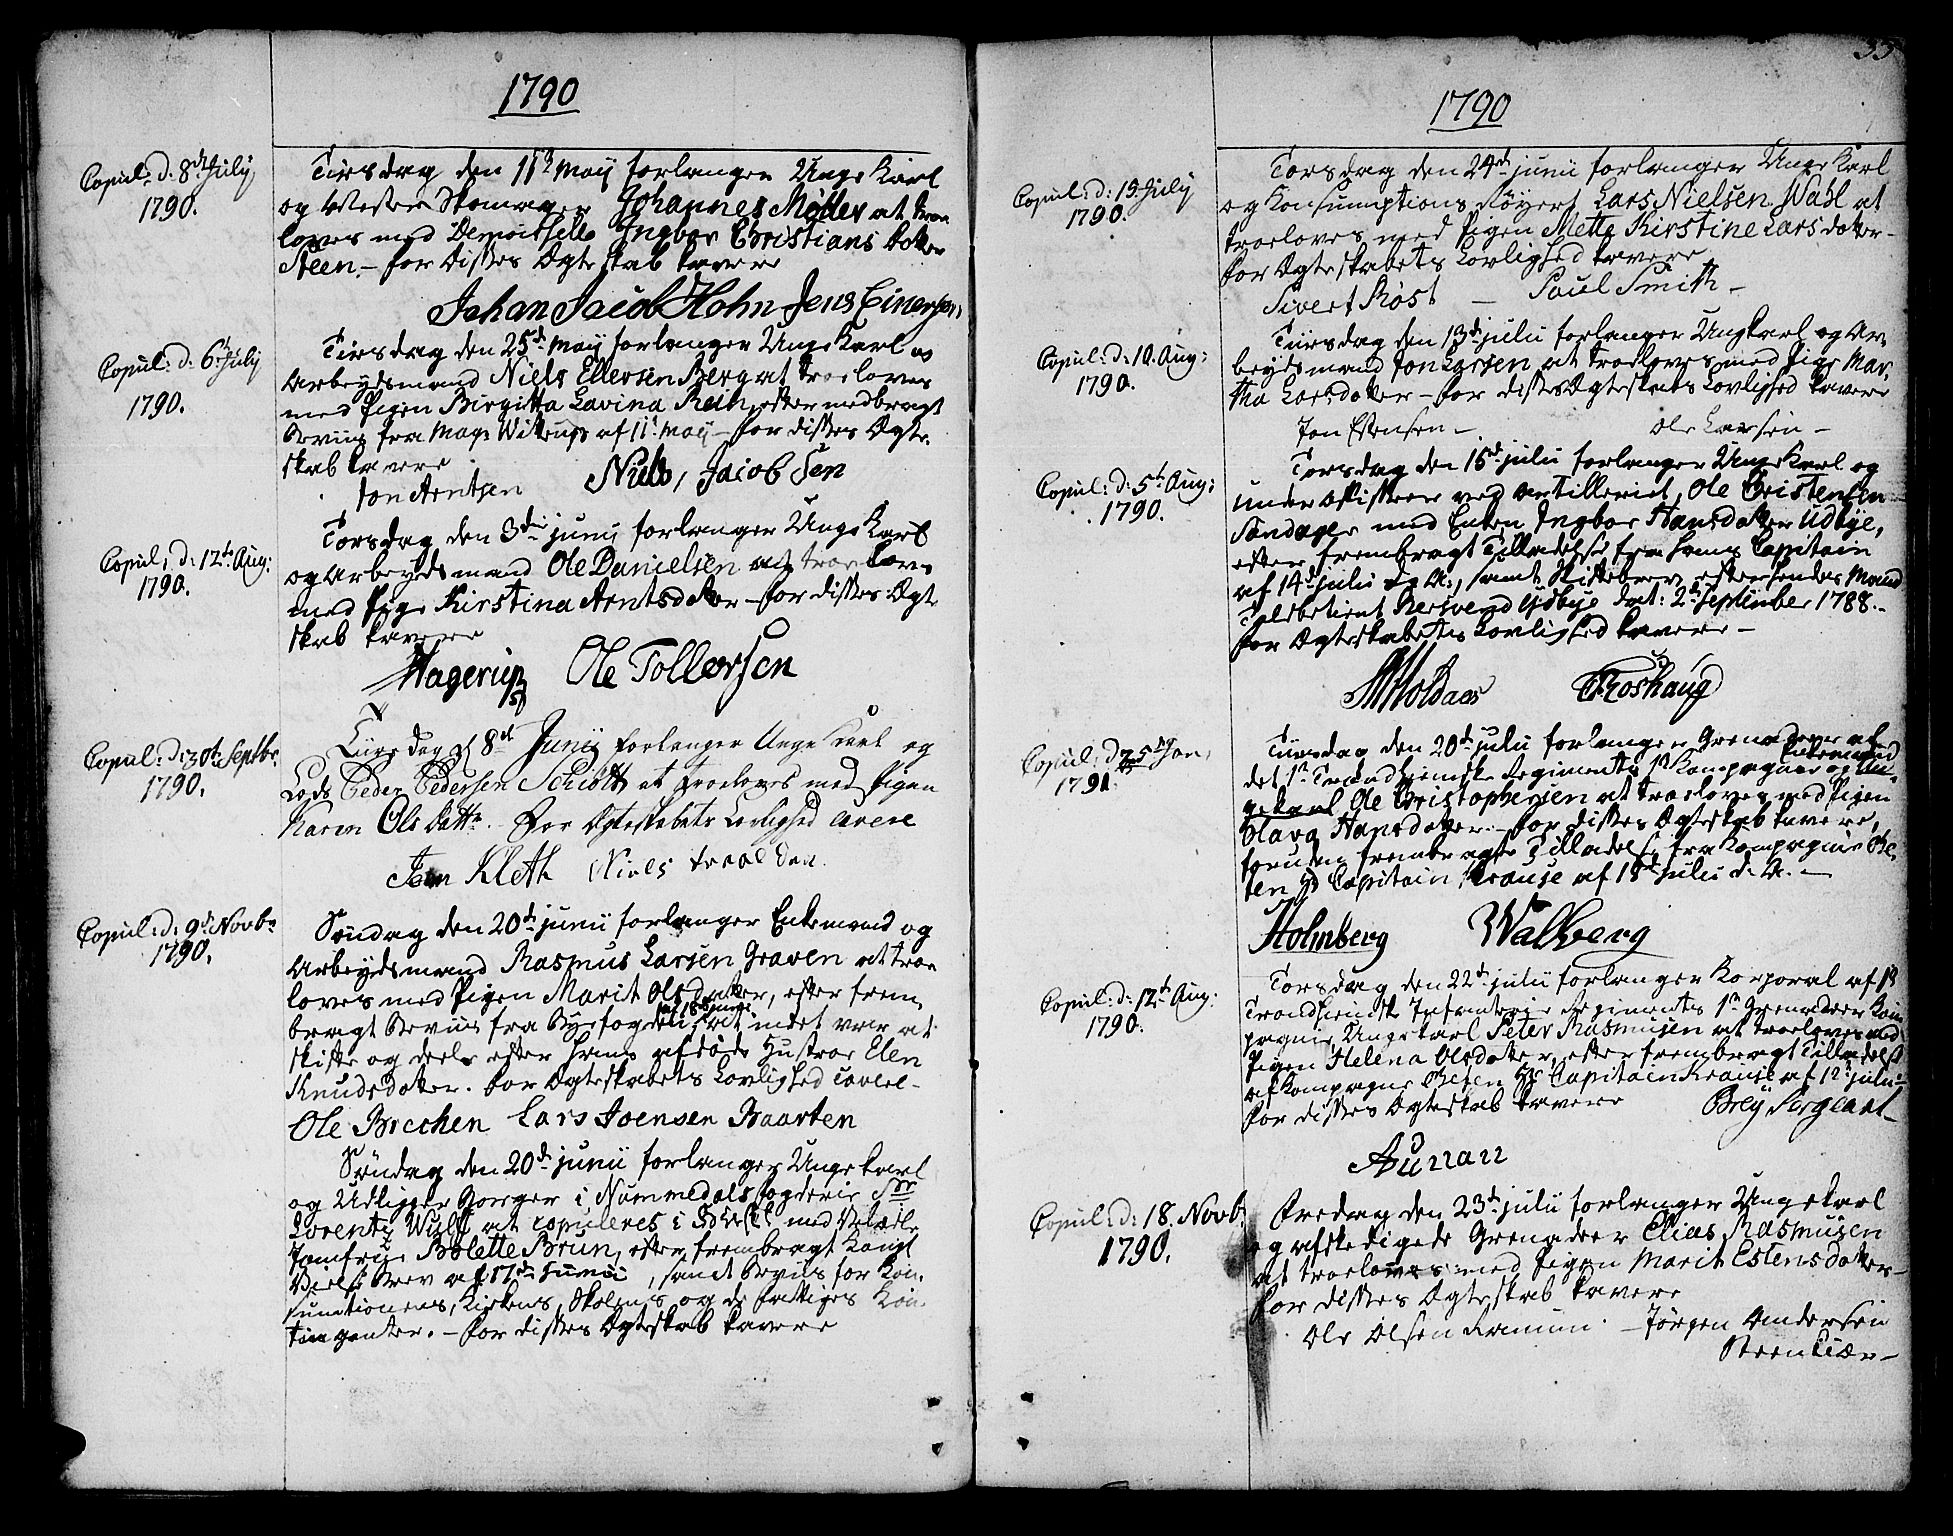 1790
Copul. d: 8de July
1790.
Tirsdag den 11te May forlanger Unge Karl
og Mester Skomager Johannes Møller at troe
loves med Demoiselle Ingbor Christians Dotter
Steen. – for disses Ægteskab cavere
Johan Jacob Hohn Jens Einersen
Copul: d: 6te July
1790.
Tirsdag den 25de May forlanger Unge Karl og
Arbeydsmand Niels Ellersen Berg at troeloves
med Pigen Birgitta Lavina Rein, efter medbragt
Beviis fra Mag: Witrup af 11te May – for disses Ægte
skab cavere
Jon Arntsen Niels, Jacob Sen
Copul, d: 12te Aug:
1790.
Torsdag den 3die junij forlanger Unge Karl
og Arbeydsmand Ole Danielsen at troeloves
med Pige Kirstina Arntsdotter – for disses Ægte
skab cavere
Hagerup Ole Tollersen
Copul: d: 30te Septbr.
1790.
Tiirsdag d 8de Junij forlanger Unge Karl og
Lods Peder Pedersen Schiøtt at troeloves med Pigen
Karen Ols Datter. For Ægteskabets Lovlighed cavere
Jon Kleth Niels traalsen.
Copul: d: 9de Novbr
1790.
Søndag den 20de junii forlanger Enkemand og
Arbeydsmand Rasmus Larsen Graven at troe
loves med Pigen Marit Olsdotter, efter frem,
bragt Beviis fra Byefogden af 18de junii at intet var at
skifte og deele efter hans afdøde Hustroe Elen
Knudsdotter. for Ægteskabets Lovlighed cavere –
Ole Brechen Lars Joensen Baarten
Søndag den 20de junii forlanger Unge karl
og Udligger Borger i Nummedals fogderie Sr
Lorentz Wulff at copuleres i Huset med Velædle
Jomfrue Bolette Brun, efter frembragt Kongl
Bevilg. Brev af 11te Junii, samt Beviis for Con,
sumtionens, Kirkens, Skolens og de fattiges Con
tingenter. – for disses Ægteskab cavere
33
1790
Copul: d: 15. July
1790.
Torsdag den 24de junii forlanger Unge Karl
og Konsumptions Røyert Lars Nielsen Wahl at
troeloves med Pigen Mette Kirstine Lars dotter –
for Ægteskabets Lovlighed cavere
Sivert Røst – Poul Smith –
Copul: d: 10. Aug:
1790.
Tiirsdag den 13de julii forlanger Ungkarl og Ar,
beydsmand Jon Larsen at troeloves med Pige Mar,
tha Larsdotter – for disses Ægteskabs Lovlighed cavere
Jon Estensen – Ole Larsen –
Copul: d: 5te Aug:
1790.
Torsdag den 15de julii forlanger Unge Karl og
under Officeer ved Artilleriet, Ole Christensen
Søndager med Enken Ingbor Hansdotter Udbye,
efter frembragt Tilladelse fra hans Capitain
af 14de julii d. A., samt Skiftebrev efter hendes Mand
Tolbetient Resvend Udbye dat: 2de September 1788. –
for Ægteskabets Lovlighed cavere –
Holdaas TRoshaug
Copul: d 25de Jan,
1791.
Tiirsdag den 20de julii forlanger Grenadeer af
det 1te Trondhiemske Regiments 1te Kompagnie og Enkemand Un,
gekarl Ole Christophersen at troeloves med Pigen
Olava Hansdotter. – for disses Ægteskab cavere,
foruden frembragte Tilladelse fra Kompagnie Che,
fen Hr Capitain Krause af 18de julii d. A. –
Holmberg Walberg
Copul: d: 12te Aug:
1790.
Torsdag den 22de julii forlanger Korporal af 1te
Trondhiemske Infanterie Regiments 1te Grenadeer Kom
pagnie Ungekarl Peter Rasmusen at troeloves med
Pigen Helena Olsdotter, efter frembragt Tilladelse
af Kompagnie Chefen Hr Capitain Krause af 12te julii –
for disses Ægteskab cavere Brey Sergeant
Aunan
Copul: d: 18. Novb:
1790.
Fredag den 23de julii forlanger Ungekarl
og afskedigede Grenadeer Elias Rasmusen
at troeloves med Pigen Marit Estensdotter –
for disses Ægteskab cavere
Ole Olsen Ramun. – Jørgen Andersen
Steenkiær –